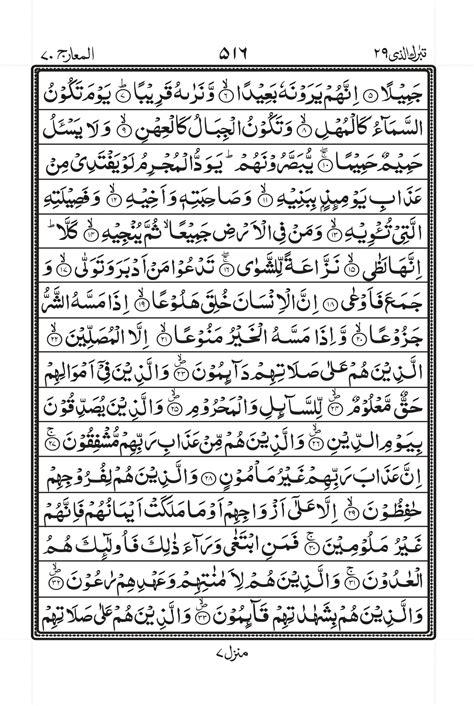 تبٰرك الذی ۲۹ ۵۱۶ المعارج ۷۰
جَمِيْلًا ۝۵ اِنَّهُمْ يَرَوْنَهٗ بَعِيْدًا ۝۶ وَّنَرٰىهُ قَرِيْبًا ۝۷ يَوْمَ تَكُوْنُ
السَّمَآءُ كَالْمُهْلِ ۝۸ وَتَكُوْنُ الْجِبَالُ كَالْعِهْنِ ۝۹ وَلَا يَسْـَٔلُ
حَمِيْمٌ حَمِيْمًا ۝۱۰ يُّبَصَّرُوْنَهُمْ ؕ يَوَدُّ الْمُجْرِمُ لَوْ يَفْتَدِيْ مِنْ
عَذَابِ يَوْمِىِٕذٍۭ بِبَنِيْهِ ۝۱۱ وَصَاحِبَتِهٖ وَاَخِيْهِ ۝۱۲ وَفَصِيْلَتِهِ
الَّتِيْ تُـْٔوِيْهِ ۝۱۳ وَمَنْ فِي الْاَرْضِ جَمِيْعًا ۙ ثُمَّ يُنْجِيْهِ ۝۱۴ كَلَّا ؕ
اِنَّهَا لَظٰى ۝۱۵ نَزَّاعَةً لِّلشَّوٰى ۝۱۶ تَدْعُوْا مَنْ اَدْبَرَ وَتَوَلّٰى ۝۱۷
وَجَمَعَ فَاَوْعٰى ۝۱۸ اِنَّ الْاِنْسَانَ خُلِقَ هَلُوْعًا ۝۱۹ اِذَا مَسَّهُ الشَّرُّ
جَزُوْعًا ۝۲۰ وَّاِذَا مَسَّهُ الْخَيْرُ مَنُوْعًا ۝۲۱ اِلَّا الْمُصَلِّيْنَ ۝۲۲
الَّذِيْنَ هُمْ عَلٰى صَلَاتِهِمْ دَآىِٕمُوْنَ ۝۲۳ وَالَّذِيْنَ فِيْٓ اَمْوَالِهِمْ
حَقٌّ مَّعْلُوْمٌ ۝۲۴ لِّلسَّآىِٕلِ وَالْمَحْرُوْمِ ۝۲۵ وَالَّذِيْنَ يُصَدِّقُوْنَ
بِيَوْمِ الدِّيْنِ ۝۲۶ وَالَّذِيْنَ هُمْ مِّنْ عَذَابِ رَبِّهِمْ مُّشْفِقُوْنَ ۝۲۷
اِنَّ عَذَابَ رَبِّهِمْ غَيْرُ مَاْمُوْنٍ ۝۲۸ وَالَّذِيْنَ هُمْ لِفُرُوْجِهِمْ
حٰفِظُوْنَ ۝۲۹ اِلَّا عَلٰٓى اَزْوَاجِهِمْ اَوْ مَا مَلَكَتْ اَيْمَانُهُمْ فَاِنَّهُمْ
غَيْرُ مَلُوْمِيْنَ ۝۳۰ فَمَنِ ابْتَغٰى وَرَآءَ ذٰلِكَ فَاُولٰٓىِٕكَ هُمُ
الْعٰدُوْنَ ۝۳۱ وَالَّذِيْنَ هُمْ لِاَمٰنٰتِهِمْ وَعَهْدِهِمْ رٰعُوْنَ ۝۳۲
وَالَّذِيْنَ هُمْ بِشَهٰدٰتِهِمْ قَآىِٕمُوْنَ ۝۳۳ وَالَّذِيْنَ هُمْ عَلٰى صَلَاتِهِمْ
منزل ۷